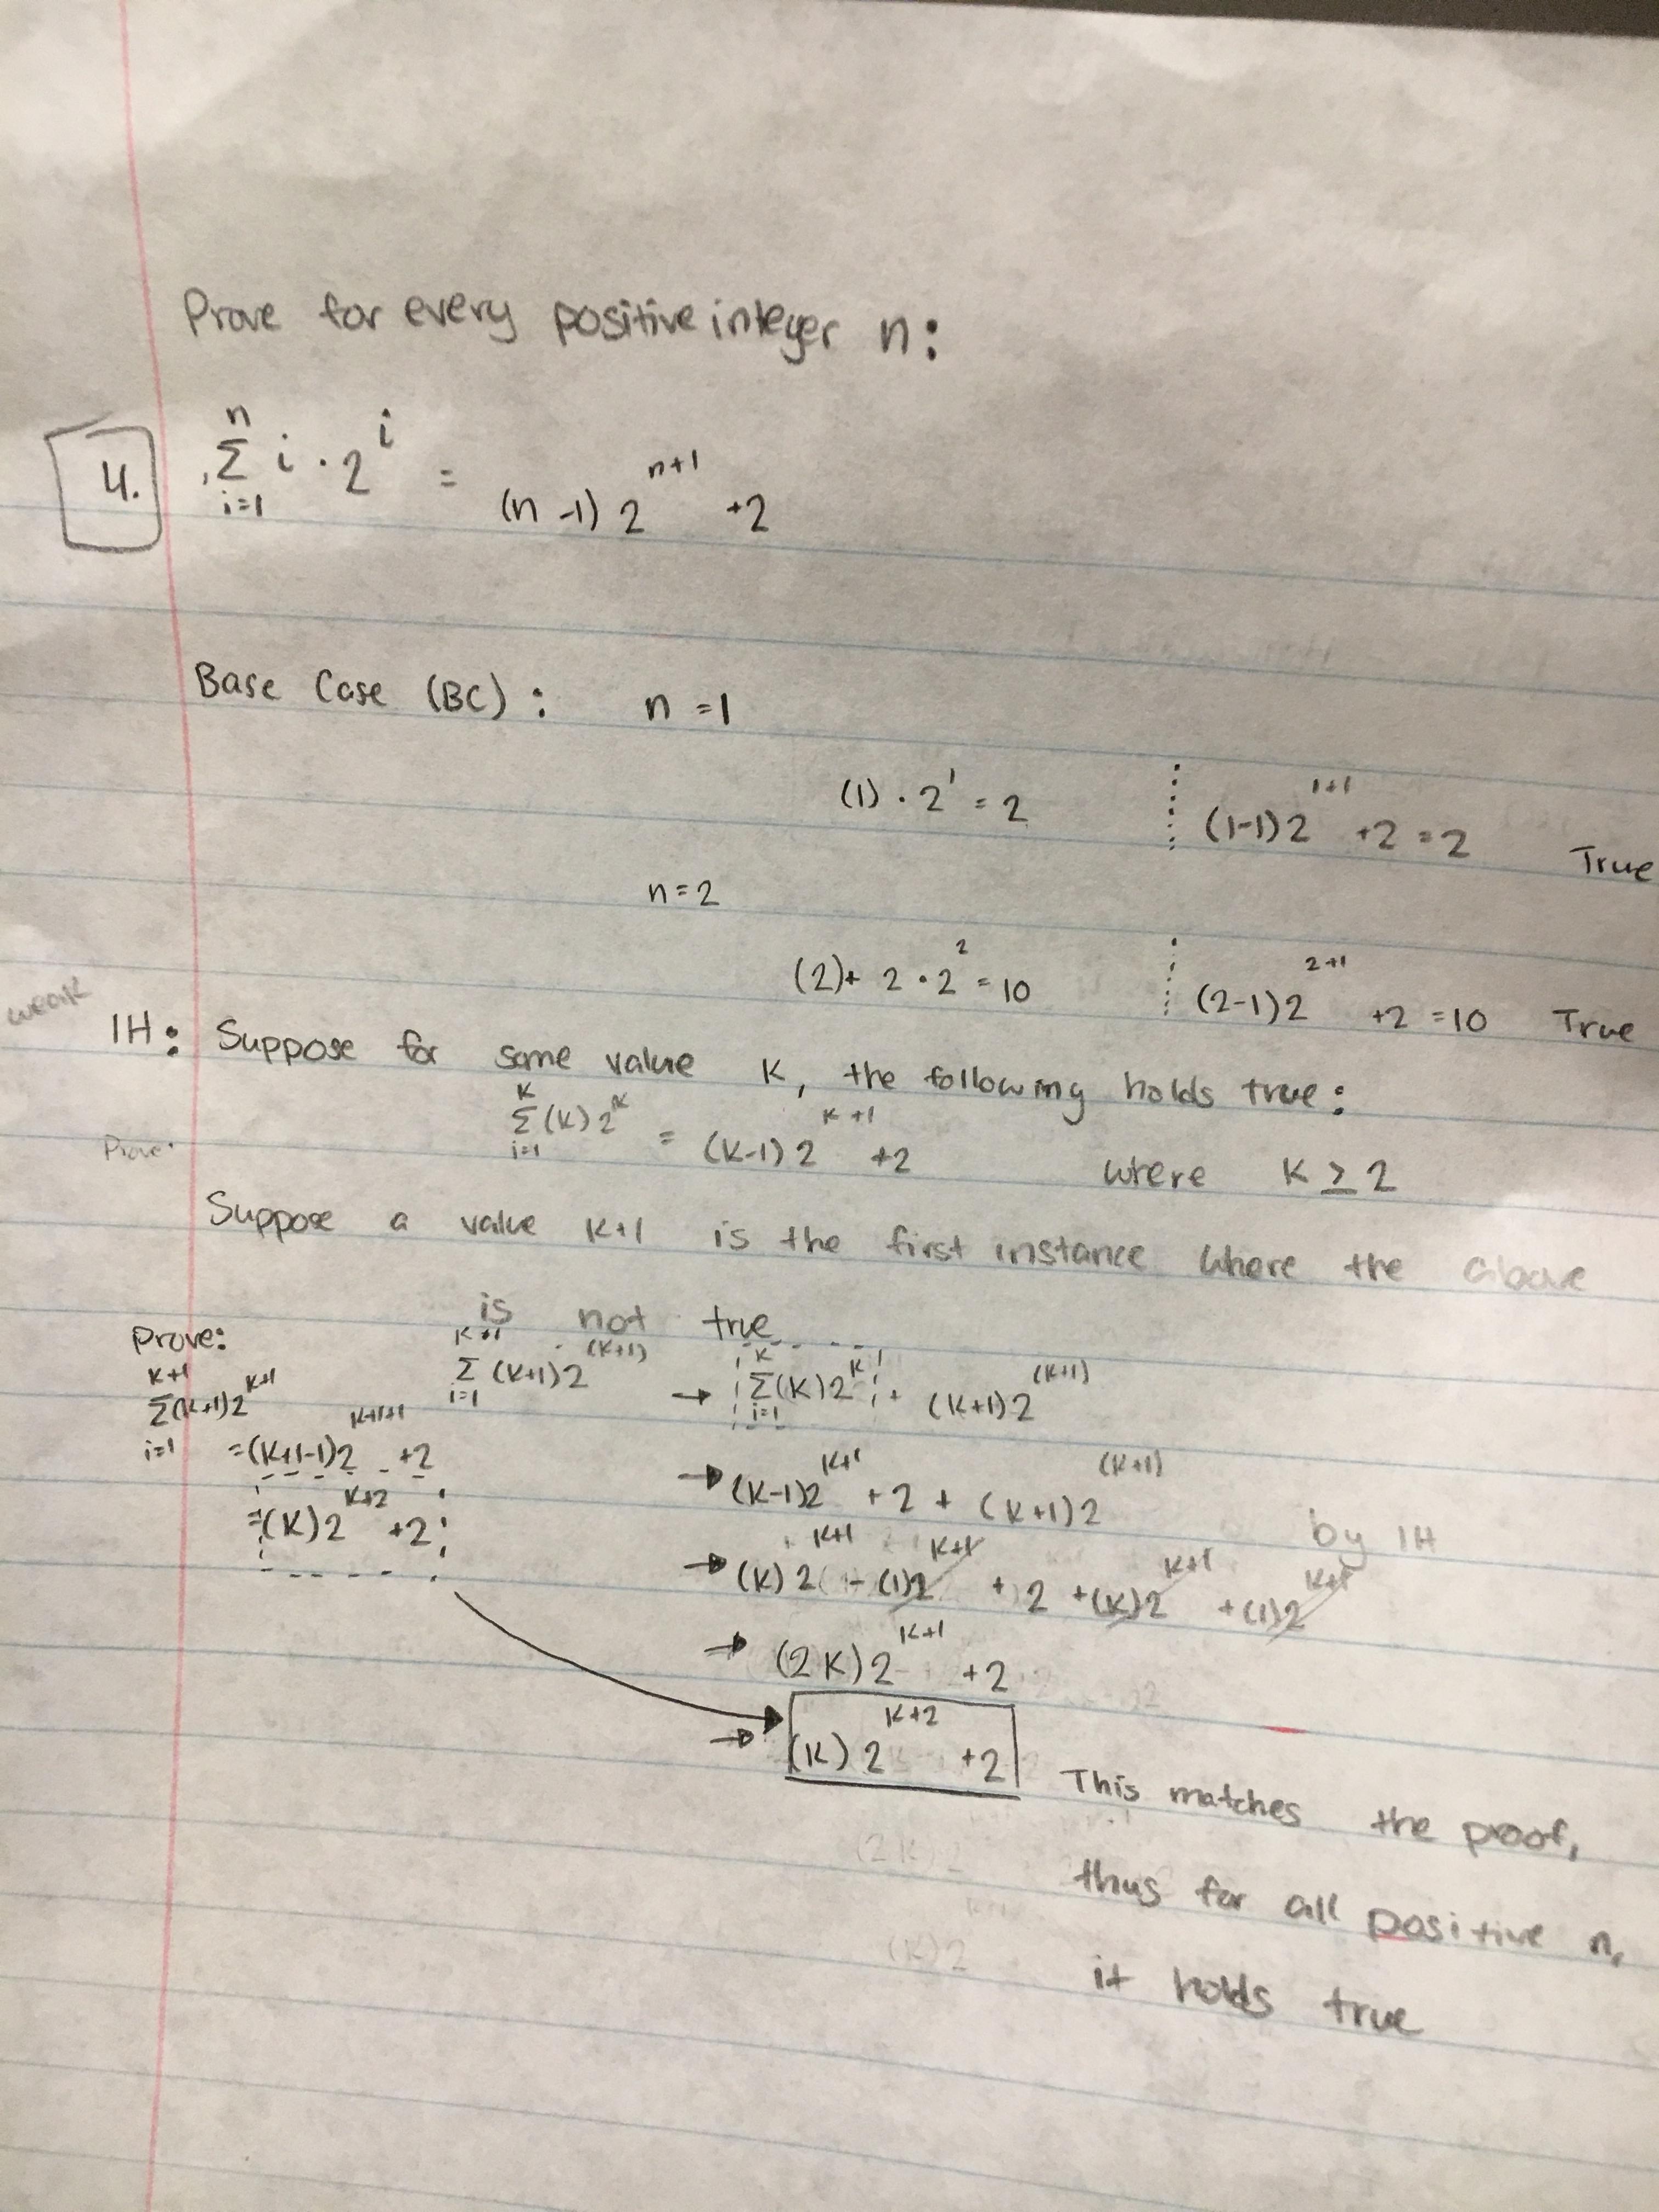 Prove for every positive integer n:
4. n Σ i=1 i · 2^i = (n-1) 2^(n+1) +2
Base Case (BC): n=1
(1) · 2^1 = 2 ⋮ (1-1)2^(1+1) +2 = 2 True
n=2
(2)+ 2 · 2^2 = 10 ⋮ (2-1)2^(2+1) +2 = 10 True
weak
IH: Suppose for some value K, the following holds true:
K Σ i=1 (K)2^K = (K-1)2^(K+1) +2 where K ≥ 2
Prove:
Suppose a value K+1 is the first instance where the above
is not true
Prove:
K+1 Σ i=1 (K+1)2^(K+1)
=(K+1-1)2^(K+1+1) +2
=(K)2^(K+2) +2
K+1 Σ i=1 (K+1)2^(K+1) → K Σ i=1 (K)2^K + (K+1)2^(K+1)
→ (K-1)2^(K+1) + 2 + (K+1)2^(K+1) by IH
→ (K)2^(K+1) - (1)2^(K+1) + 2 + (K)2^(K+1) + (1)2^(K+1)
→ (2K)2^(K+1) +2
→ (K)2^(K+2) +2
This matches the proof,
thus for all positive n,
it holds true